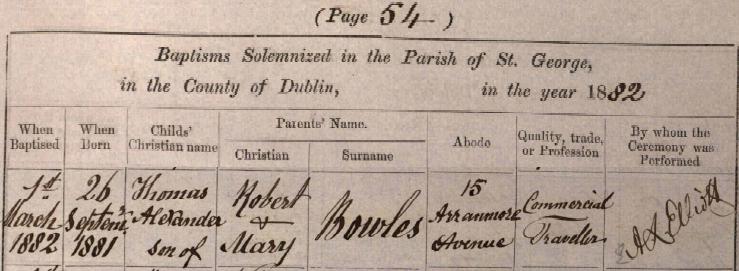 (Page 54)
Baptisms Solemnized in the Parish of St. George,
in the County of Dublin, in the year 1882
When Baptised
When Born
Childs' Christian name
Parents' Name.
Christian
Surname
Abode
Quality, trade, or Profession
By whom the Ceremony was Performed
1st March 1882
26 Septemr 1881
Thomas Alexander son of
Robert & Mary
Bowles
15 Arranmore Avenue
Commercial Traveller
A L Elliott